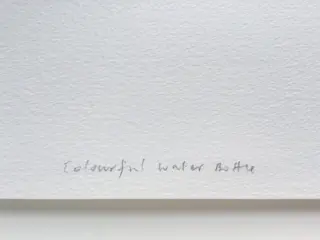 Colourful water Bottle